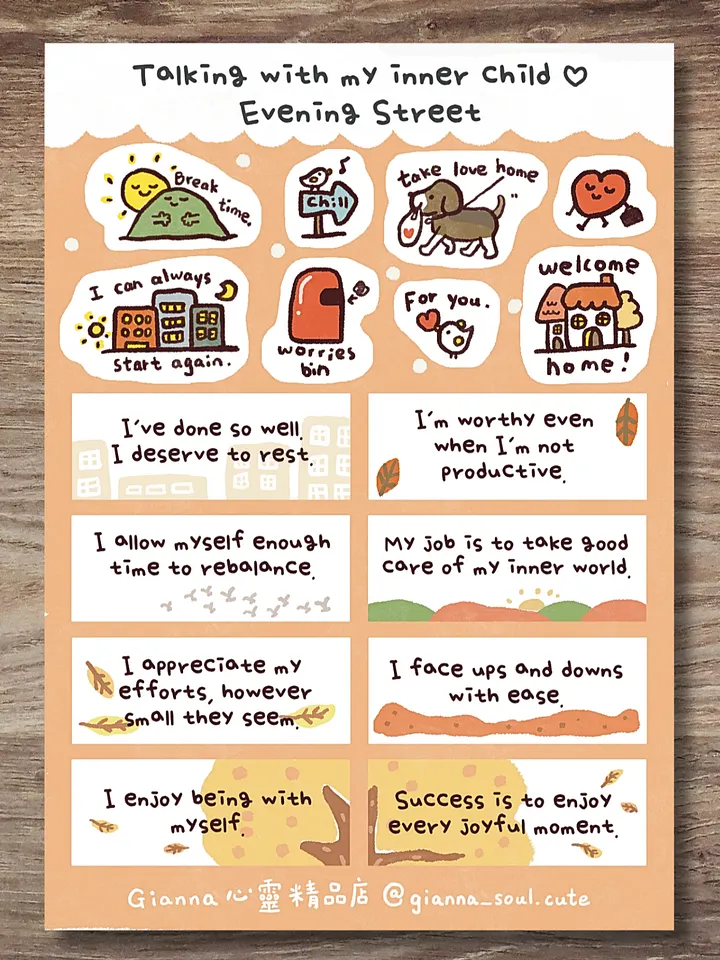 Talking with my inner child ♡
Evening Street
Break
time.
Chill
take love home
I can always
start again.
worries
bin
For you.
welcome
home!
I've done so well.
I deserve to rest.
I'm worthy even
when I'm not
productive.
I allow myself enough
time to rebalance.
My job is to take good
care of my inner world.
I appreciate my
efforts, however
small they seem.
I face ups and downs
with ease.
I enjoy being with
myself.
Success is to enjoy
every joyful moment.
Gianna 心靈精品店 @gianna_soul.cute